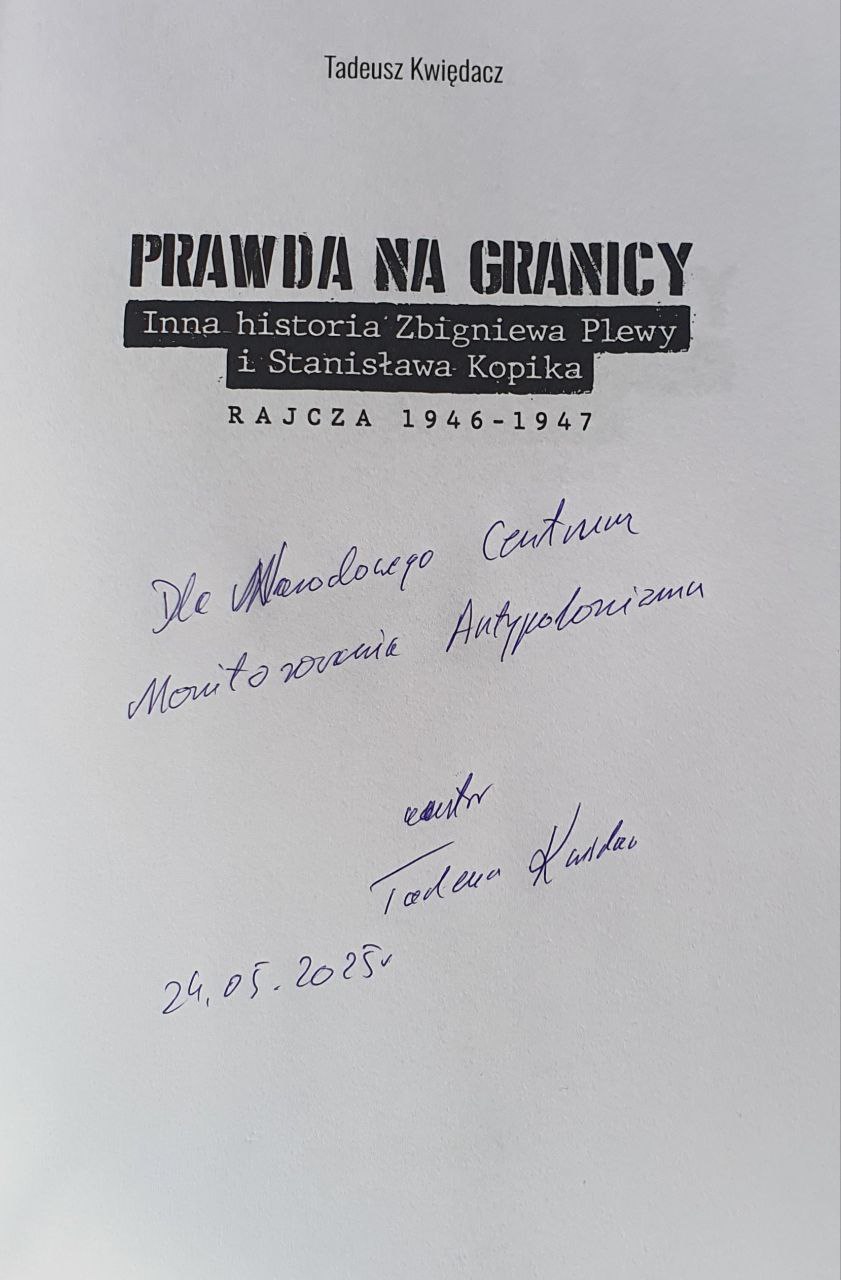 Tadeusz Kwiędacz
PRAWDA NA GRANICY
Inna historia Zbigniewa Plewy
i Stanisława Kopika
RAJCZA 1946-1947
Dla Narodowego Centrum
Monitorowania Antypolonizmu
autor
Tadeusz
24.05.2025r